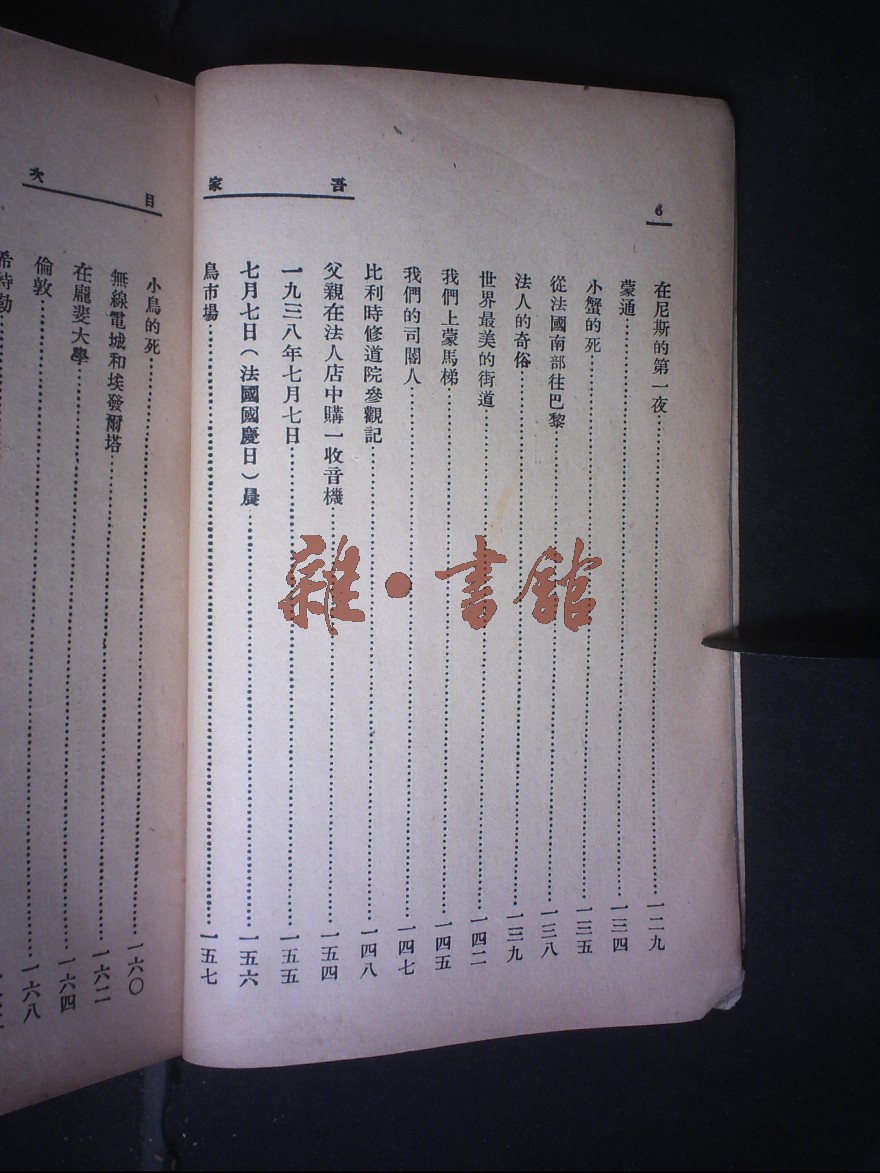 吾家
6
在尼斯的第一夜……一二九
蒙通……一三四
小蟹的死……一三五
從法國南部往巴黎……一三八
法人的奇俗……一三九
世界最美的街道……一四二
我們上蒙馬梯……一四五
我們的司閽人……一四七
比利時修道院參觀記……一四八
父親在法人店中購一收音機……一五四
一九三八年七月七日……一五五
七月七日(法國國慶日)晨……一五六
鳥市場……一五七
目次
小鳥的死……一六〇
無線電城和埃發爾塔……一六二
在龐斐大學……一六四
倫敦……一六八
希特勒……
雜·書館